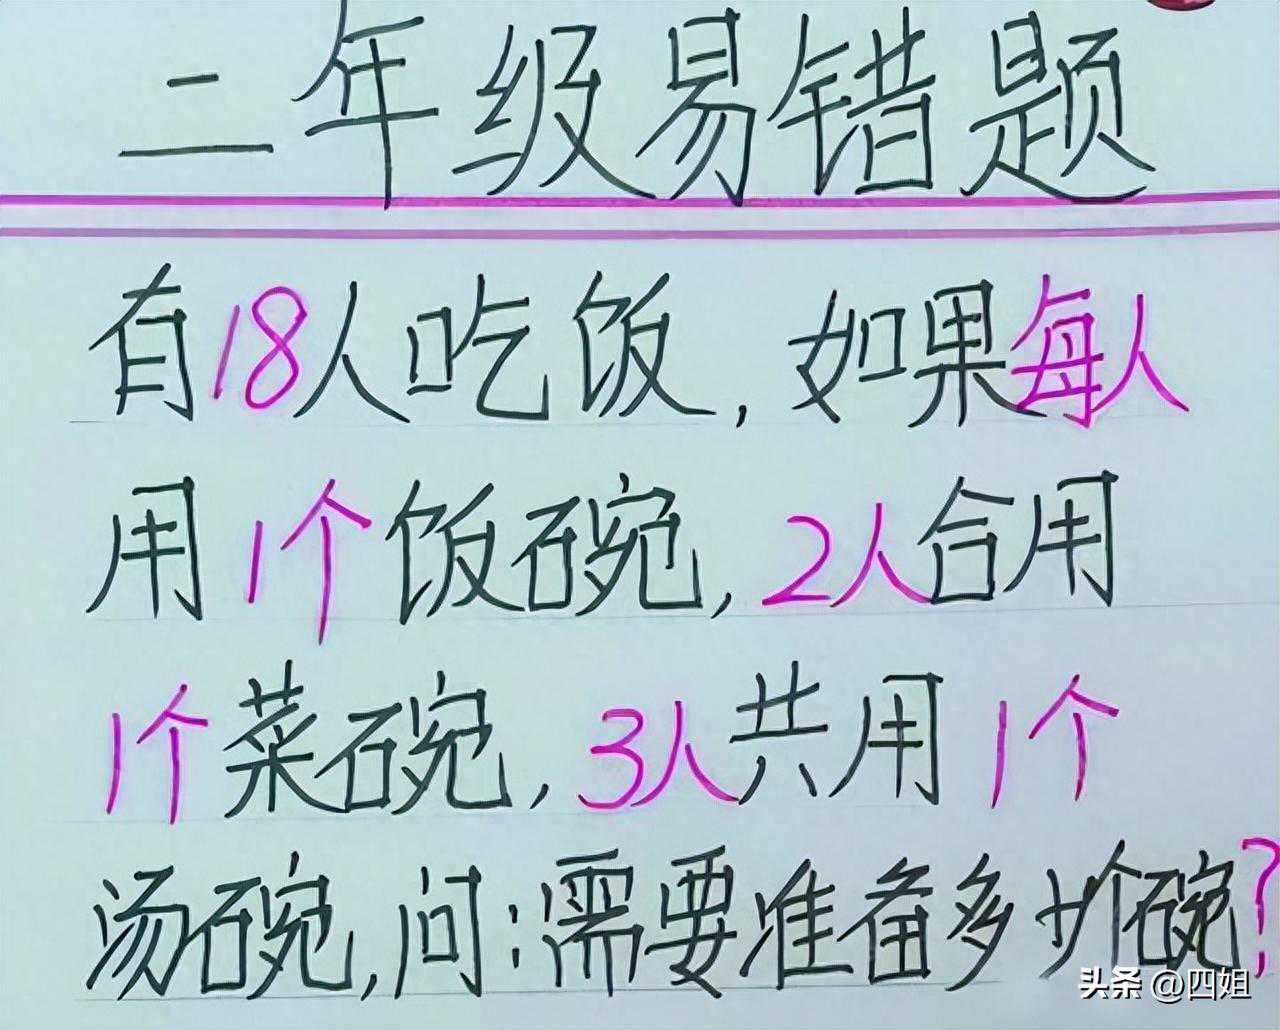 二年级易错题
有18人吃饭,如果每人
用1个饭碗,2人合用
1个菜碗,3人共用1个
汤碗,问:需要准备多少个碗?
头条 @四姐